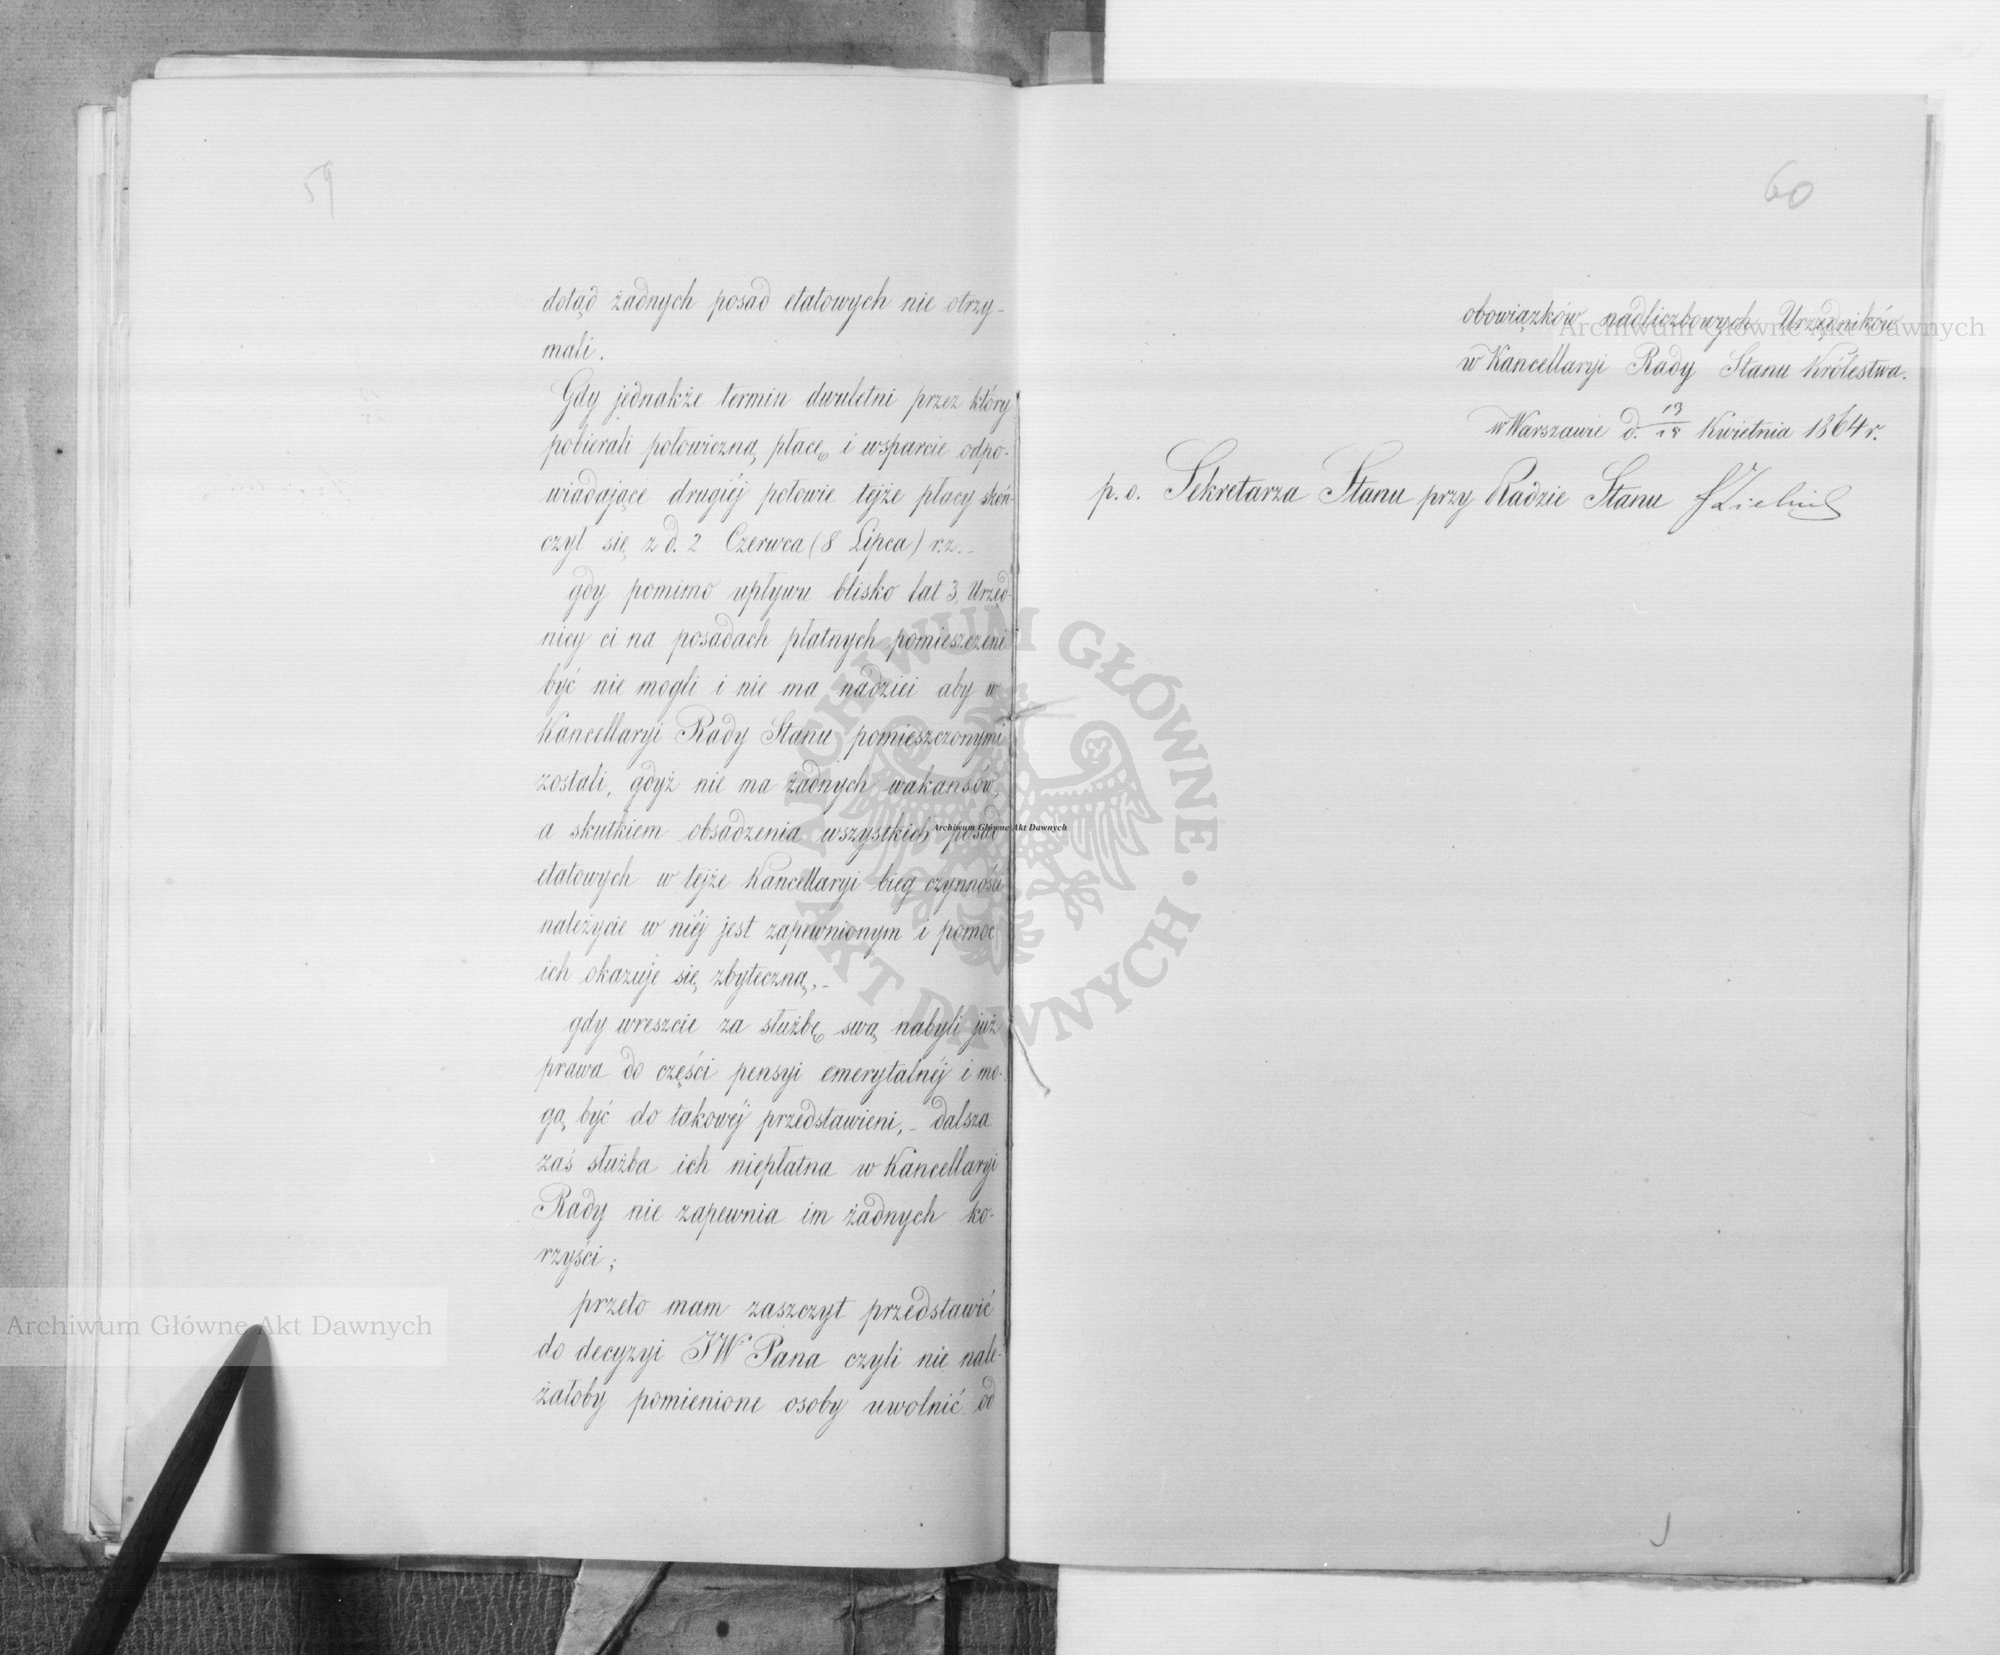 59
dotąd żadnych posad etatowych nie otrzy-
mali.
Gdy jednakże termin dwuletni przez który
pobierali połowiczną płacę i wsparcie odpo-
wiadające drugiéj połowie tejże płacy skoń-
czył się z d. 2 Czerwca (8 Lipca) r.z.-
gdy pomimo upływu blisko lat 3, Urzęd-
nicy ci na posadach płatnych pomieszczeni
być nie mogli i nie ma nadziei aby w
Kancellaryi Rady Stanu pomieszczonymi
zostali, gdyż nie ma żadnych wakansów,
a skutkiem obsadzenia wszystkich posad
etatowych w tejże Kancellaryi bieg czynności
należycie w niéj jest zapewnionym i pomoc
ich okazuje się zbyteczną,-
gdy wreszcie za służbę swą nabyli już
prawa do części pensyi emerytalnéj i mo-
gą być do takowéj przedstawieni,- dalsza
zaś służba ich niepłatna w Kancellaryi
Rady nie zapewnia im żadnych ko-
rzyści;
przeto mam zaszczyt przedstawić
do decyzyi JW Pana czyli nie nale-
żałoby pomienione osoby uwolnić od
60
obowiązków nadliczbowych Urzędników
w Kancellaryi Rady Stanu Królestwa.
w Warszawie d. Kwietnia 1864 r.
p. o. Sekretarza Stanu przy Radzie Stanu
Archiwum Główne Akt Dawnych
Archiwum Główne Akt Dawnych
Archiwum Główne Akt Dawnych
ARCHIWUM GŁÓWNE · AKT DAWNYCH ·